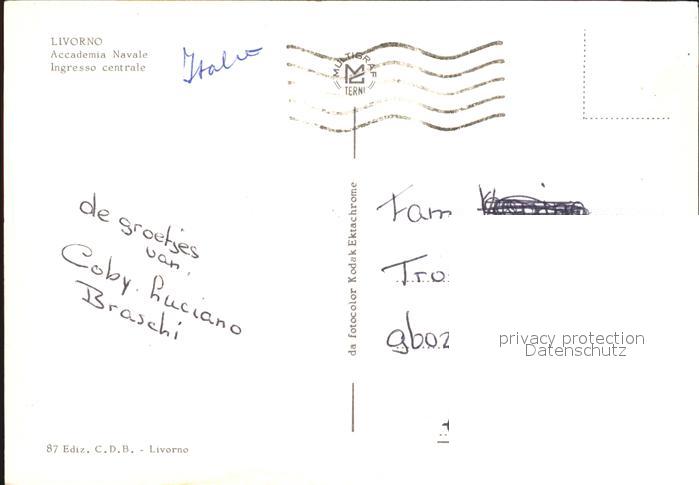 LIVORNO
Accademia Navale
Ingresso centrale
Italie
MULTIGRAF
TERNI
da fotocolor Kodak Ektachrome
de groetjes
van.
Coby. Luciano
Braschi
Fam
Tro
gboz
privacy protection
Datenschutz
87 Ediz. C.D.B. - Livorno